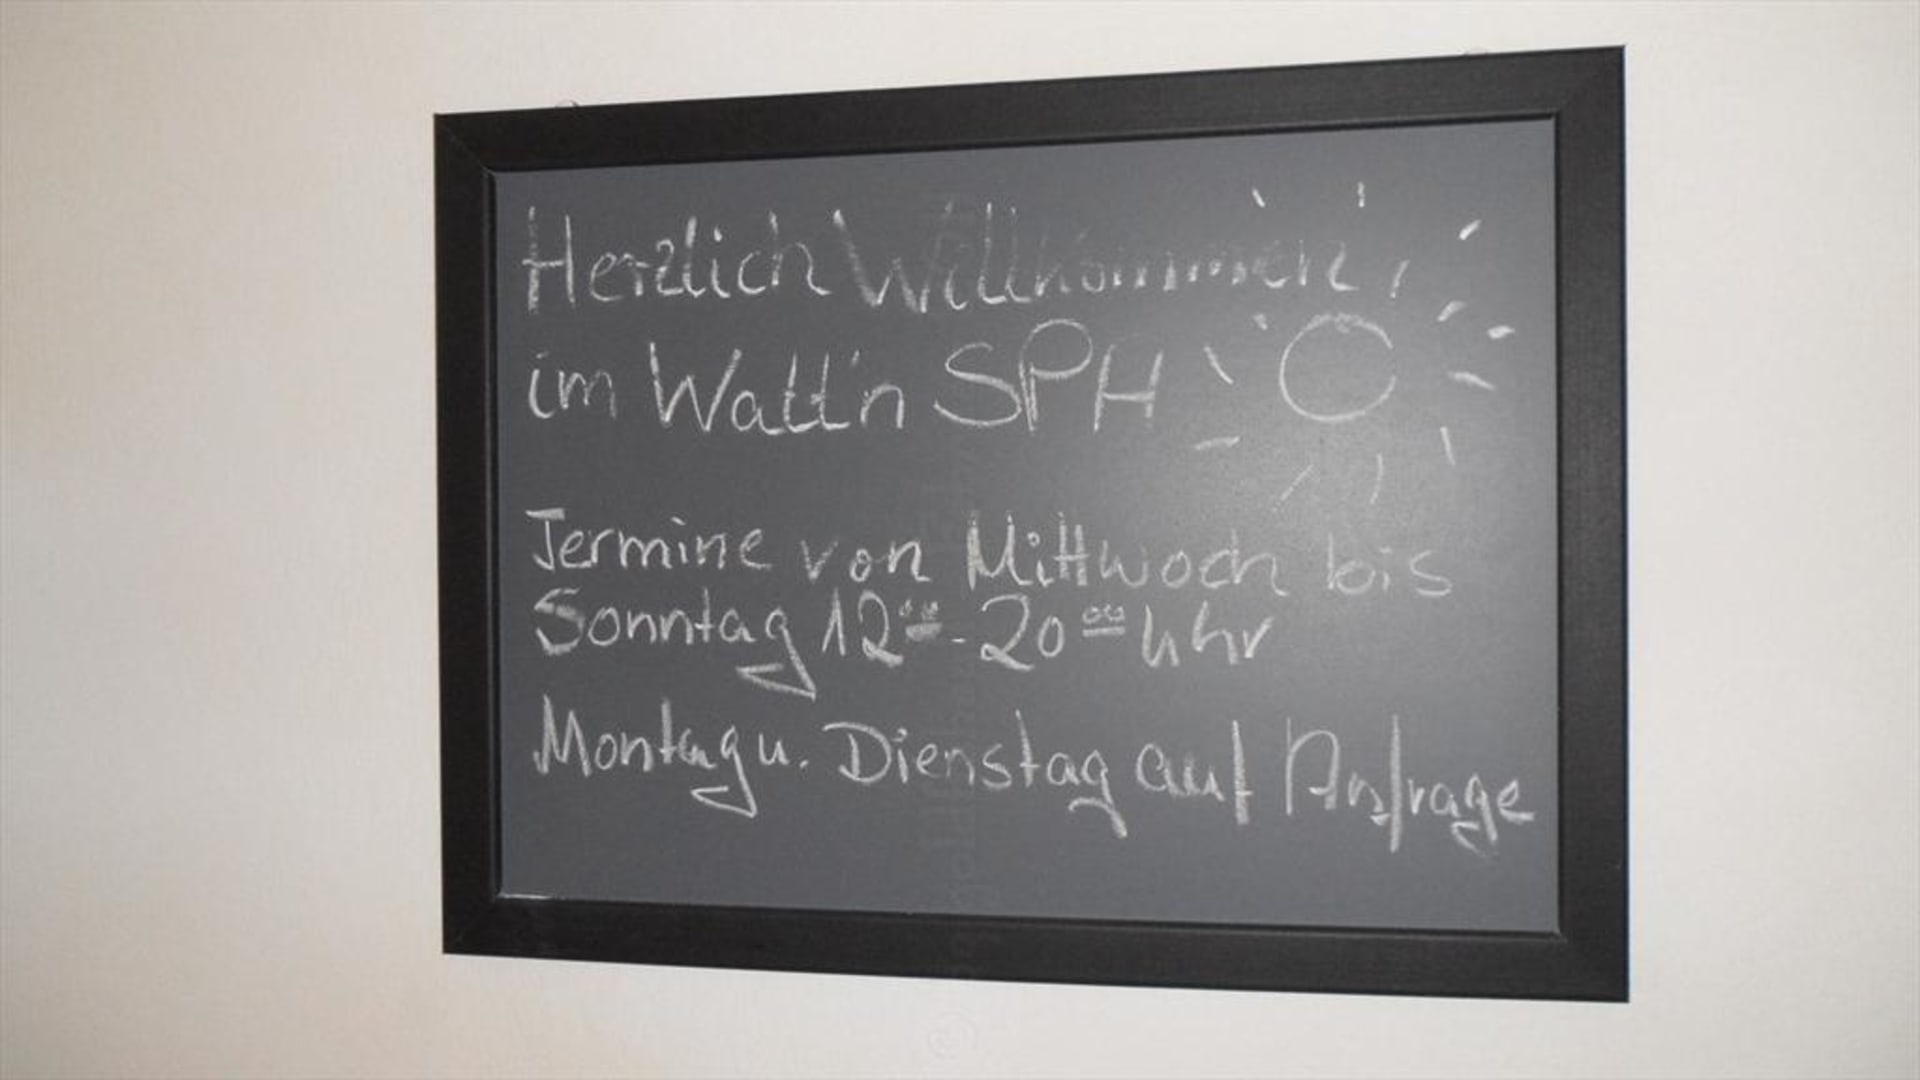 Herzlich Willkommen,
im Watt'n SPA
Termine von Mittwoch bis
Sonntag 12⁰⁰-20⁰⁰ Uhr
Montag u. Dienstag auf Anfrage